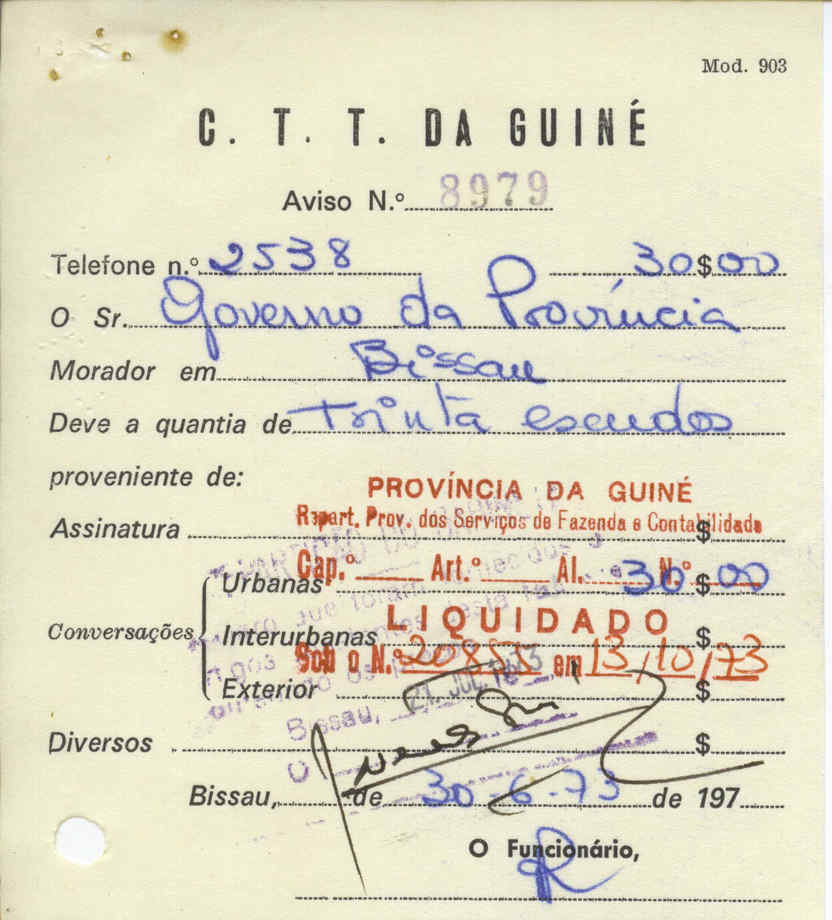 Mod. 903
C. T. T. DA GUINÉ
Aviso N.º 8979
Telefone n.º 2538 30$00
O Sr. Governo da Província
Morador em Bissau
Deve a quantia de Trinta escudos
proveniente de:
PROVÍNCIA DA GUINÉ
Repart. Prov. dos Serviços de Fazenda e Contabilidade
Assinatura $
Cap.º Art.º Al. N.º
Urbanas 30$00
LIQUIDADO
Conversações Interurbanas $
Sob o N.º em 13/10/73
Exterior $
21. JUL. 1973
Bissau,
Diversos $
O
Bissau, de 30-6-73 de 197
O Funcionário,